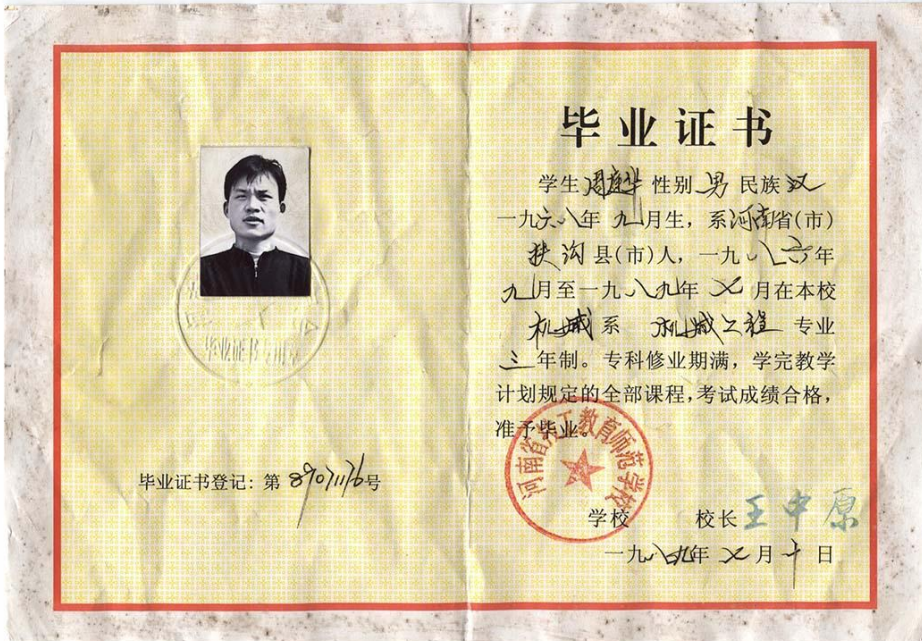 毕业证书登记：第89071176号
毕业证书
学生 周建华 性别 男 民族 汉
一九六八年 九月生，系河南省(市)
扶沟县(市)人，一九八六年
九月至一九八九年 七月在本校
机械系 机械工程 专业
三年制。专科修业期满，学完教学
计划规定的全部课程，考试成绩合格，
准予毕业。
河南省 工教育师范学校
学校 校长 王中原
一九八九年 七月十日
毕业证书专用